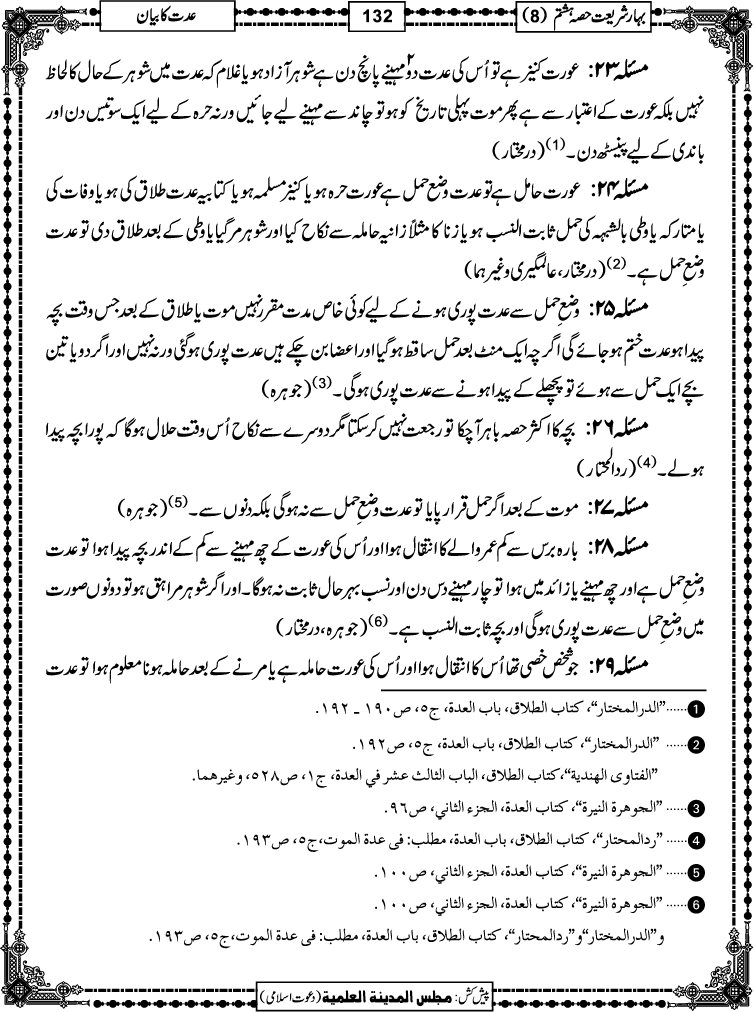 بہار شریعت حصہ ہشتم (8)
132
عدت کا بیان
مسئلہ ۲۳: عورت کنیز ہے تو اُس کی عدت دو۲ مہینے پانچ دن ہے شوہر آزاد ہو یا غلام کہ عدت میں شوہر کے حال کا لحاظ
نہیں بلکہ عورت کے اعتبار سے ہے پھر موت پہلی تاریخ کو ہو تو چاند سے مہینے لیے جائیں ورنہ حرہ کے لیے ایک سو تیس دن اور
باندی کے لیے پینسٹھ دن۔(1) (درمختار)
مسئلہ ۲۴: عورت حامل ہے تو عدت وضع حمل ہے عورت حرہ ہو یا کنیز مسلمہ ہو یا کتابیہ عدت طلاق کی ہو یا وفات کی
یا متارکہ یا وطی بالشبہہ کی حمل ثابت النسب ہو یا زنا کا مثلاً زانیہ حاملہ سے نکاح کیا اور شوہر مرگیا یا وطی کے بعد طلاق دی تو عدت
وضعِ حمل ہے۔(2) (درمختار، عالمگیری وغیرہما)
مسئلہ ۲۵: وضعِ حمل سے عدت پوری ہونے کے لیے کوئی خاص مدت مقرر نہیں موت یا طلاق کے بعد جس وقت بچہ
پیدا ہو عدت ختم ہو جائے گی اگرچہ ایک منٹ بعد حمل ساقط ہوگیا اور اعضا بن چکے ہیں عدت پوری ہوگئی ورنہ نہیں اور اگر دو یا تین
بچے ایک حمل سے ہوئے تو پچھلے کے پیدا ہونے سے عدت پوری ہوگی۔(3) (جوہرہ)
مسئلہ ۲۶: بچہ کا اکثر حصہ باہر آچکا تو رجعت نہیں کر سکتا مگر دوسرے سے نکاح اُس وقت حلال ہوگا کہ پورا بچہ پیدا
ہولے۔(4) (ردالمحتار)
مسئلہ ۲۷: موت کے بعد اگر حمل قرار پایا تو عدت وضعِ حمل سے نہ ہوگی بلکہ دنوں سے۔(5) (جوہرہ)
مسئلہ ۲۸: بارہ برس سے کم عمر والے کا انتقال ہوا اور اُس کی عورت کے چھ مہینے سے کم کے اندر بچہ پیدا ہوا تو عدت
وضعِ حمل ہے اور چھ مہینے یا زائد میں ہوا تو چار مہینے دس دن اور نسب بہرحال ثابت نہ ہوگا۔ اور اگر شوہر مراہق ہو تو دونوں صورت
میں وضعِ حمل سے عدت پوری ہوگی اور بچہ ثابت النسب ہے۔(6) (جوہرہ، درمختار)
مسئلہ ۲۹: جو شخص خصی تھا اُس کا انتقال ہوا اور اُس کی عورت حاملہ ہے یا مرنے کے بعد حاملہ ہونا معلوم ہوا تو عدت
1 ......"الدرالمختار"، كتاب الطلاق، باب العدة، ج٥، ص١٩٠ ـ ١٩٢.
2 ......"الدرالمختار"، كتاب الطلاق، باب العدة، ج٥، ص١٩٢.
"الفتاوى الهندية"،كتاب الطلاق، الباب الثالث عشر في العدة، ج١، ص٥٢٨، وغيرهما.
3 ......"الجوهرة النيرة"، كتاب العدة، الجزء الثاني، ص٩٦.
4 ......"ردالمحتار"، كتاب الطلاق، باب العدة، مطلب: فى عدة الموت،ج٥، ص١٩٣.
5 ......"الجوهرة النيرة"، كتاب العدة، الجزء الثاني، ص١٠٠.
6 ......"الجوهرة النيرة"، كتاب العدة، الجزء الثاني، ص١٠٠.
و"الدرالمختار"و"ردالمحتار"، كتاب الطلاق، باب العدة، مطلب: فى عدة الموت،ج٥، ص١٩٣.
پیش کش: مجلس المدینة العلمیة (دعوت اسلامی)